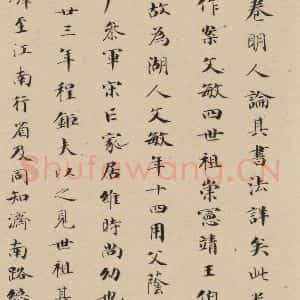 卷明人論其書法詳矣此卷
作案文敏四世祖崇憲靖王伯
故為湖人文敏年十四用父蔭
戶參軍宋亡家居維時尚幼也
廿三年程鉅夫以之見世祖其
擢至江南行省乃同知濟南路總
Shufawang.CN